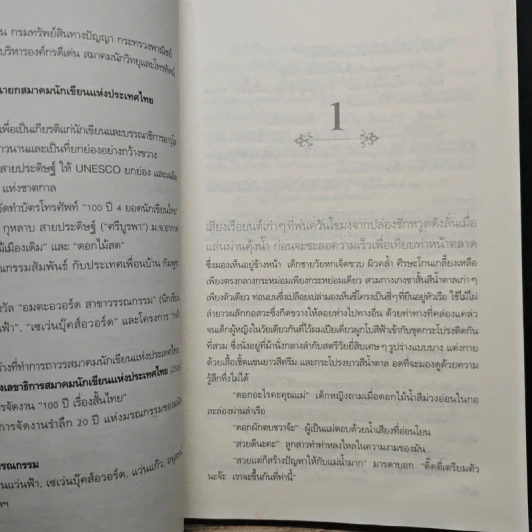 น กรมทรัพย์สินทางปัญญา กระทรวงพาณิชย์
บริหารองค์กรดีเด่น สมาคมนักวิทยุและโทรทัศน์
นายกสมาคมนักเขียนแห่งประเทศไทย
เพื่อเป็นเกียรติแก่นักเขียนและบรรณาธิการอาวุโส
าวนานและเป็นที่ยกย่องอย่างกว้างขวาง
สายประดิษฐ์ ให้ UNESCO ยกย่อง
แห่งชาตกาล
จัดทำบัตรโทรศัพท์ "100 ปี 4 ยอดนักเขียนไทย"
กุหลาบ สายประดิษฐ์ ("ศรีบูรพา") ม.จ.อากาศ
ม้เมืองเดิม" และ "ดอกไม้สด"
ณกรรมสัมพันธ์ กับประเทศเพื่อนบ้าน กัมพูชา
วัล "อมตะอวอร์ด สาขาวรรณกรรม"
ฟ้า", "เซเว่นบุ๊คส์อวอร์ด" และโครงการ
างที่ทำการถาวรสมาคมนักเขียนแห่งประเทศไทย
งเลขาธิการสมาคมนักเขียนแห่งประเทศไทย
ารจัดงาน "100 ปี เรื่องสั้นไทย"
การจัดงานรำลึก 20 ปี แห่งมรณกรรมของ
รณกรรม
แว่นฟ้า, เซเว่นบุ๊คส์อวอร์ด, แว่นแก้ว,
ฯ
1
เสียงเรือยนต์เก่าๆ ที่พ่นควันโขมงจากปล่องชักหวูดดังลั่นเมื่อ
แล่นผ่านคุ้งน้ำ ก่อนจะชะลอความเร็วเพื่อเทียบท่าหน้าตลาด
ซึ่งมองเห็นอยู่ข้างหน้า เด็กชายวัยหกเจ็ดขวบ ผิวคล้ำ ศีรษะโกนเกลี้ยงเหลือ
เพียงตรงกลางกระหม่อมเพียงกระหย่อมเดียว สวมกางเกงขาสั้นสีน้ำตาลเก่าๆ
เพียงตัวเดียว ท่อนบนซึ่งเปลือยเปล่ามองเห็นซี่โครงเป็นซี่ๆ ที่ยืนอยู่หัวเรือ ใช้ไม้ไผ่
ลำยาวผลักกอสวะซึ่งกีดขวางให้ลอยห่างไปทางอื่น ด้วยท่าทางที่คล่องแคล่ว
จนเด็กผู้หญิงในวัยเดียวกันที่ไว้ผมเปียเดี่ยวผูกโบสีฟ้าเข้ากับชุดกระโปรงติดกัน
ที่สวม ซึ่งนั่งอยู่ที่ม้านั่งกลางลำกับสตรีวัยยี่สิบเศษๆ รูปร่างแบบบาง แต่งกาย
ด้วยเสื้อเชิ้ตแขนยาวสีครีม และกระโปรงยาวสีน้ำตาล อดที่จะมองดูด้วยความ
รู้สึกทึ่งไม่ได้
"ดอกอะไรคะคุณแม่" เด็กหญิงถามเมื่อดอกไม้น้ำสีม่วงอ่อนในกอ
ละล่องผ่านลำเรือ
"ดอกผักตบชวาจ้ะ" ผู้เป็นแม่ตอบด้วยน้ำเสียงที่อ่อนโยน
"สวยดีนะคะ" ลูกสาวทำท่าหลงใหลในความงามของมัน
"สวยแต่ก็สร้างปัญหาให้กับแม่น้ำมาก" มารดาบอก "ติ๊ดตี่เตรียมตัว
นะจ๊ะ เราจะขึ้นกันที่ท่านี้"